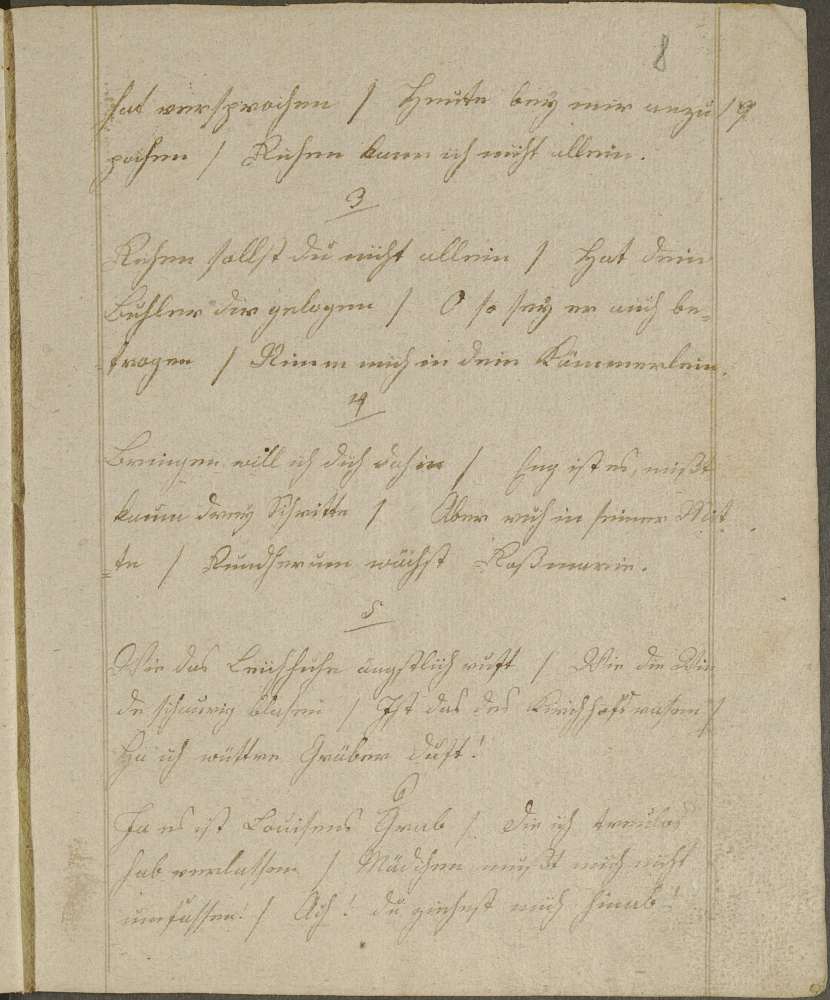 8
hat versprochen / Heute bey mir anzu / 9
pochen / Ruhen kann ich nicht allein.
3
Ruhen sollst du nicht allein / Hat dein
Buhler dir gelogen / O so sey er auch be=
trogen / Nimm mich in dein Kämmerlein.
4
Bringen will ich dich dahin / Eng ist es, mißt
kaum drey Schritte / Aber ruh in seiner Mit
=te / Rundherum wächst Roßmarin.
5
Wie das Leichhuhn ängstlich ruft / Wie die Win
de schaurig blasen / Ist das des Kirchhofs rasen /
Ha ich wittre Gräber Duft!
6
Ja es ist Louisens Grab / Die ich treulos
hab verlassen / Mädchen mußt mich nicht
umfassen! / Ach! du ziehest mich hinab!